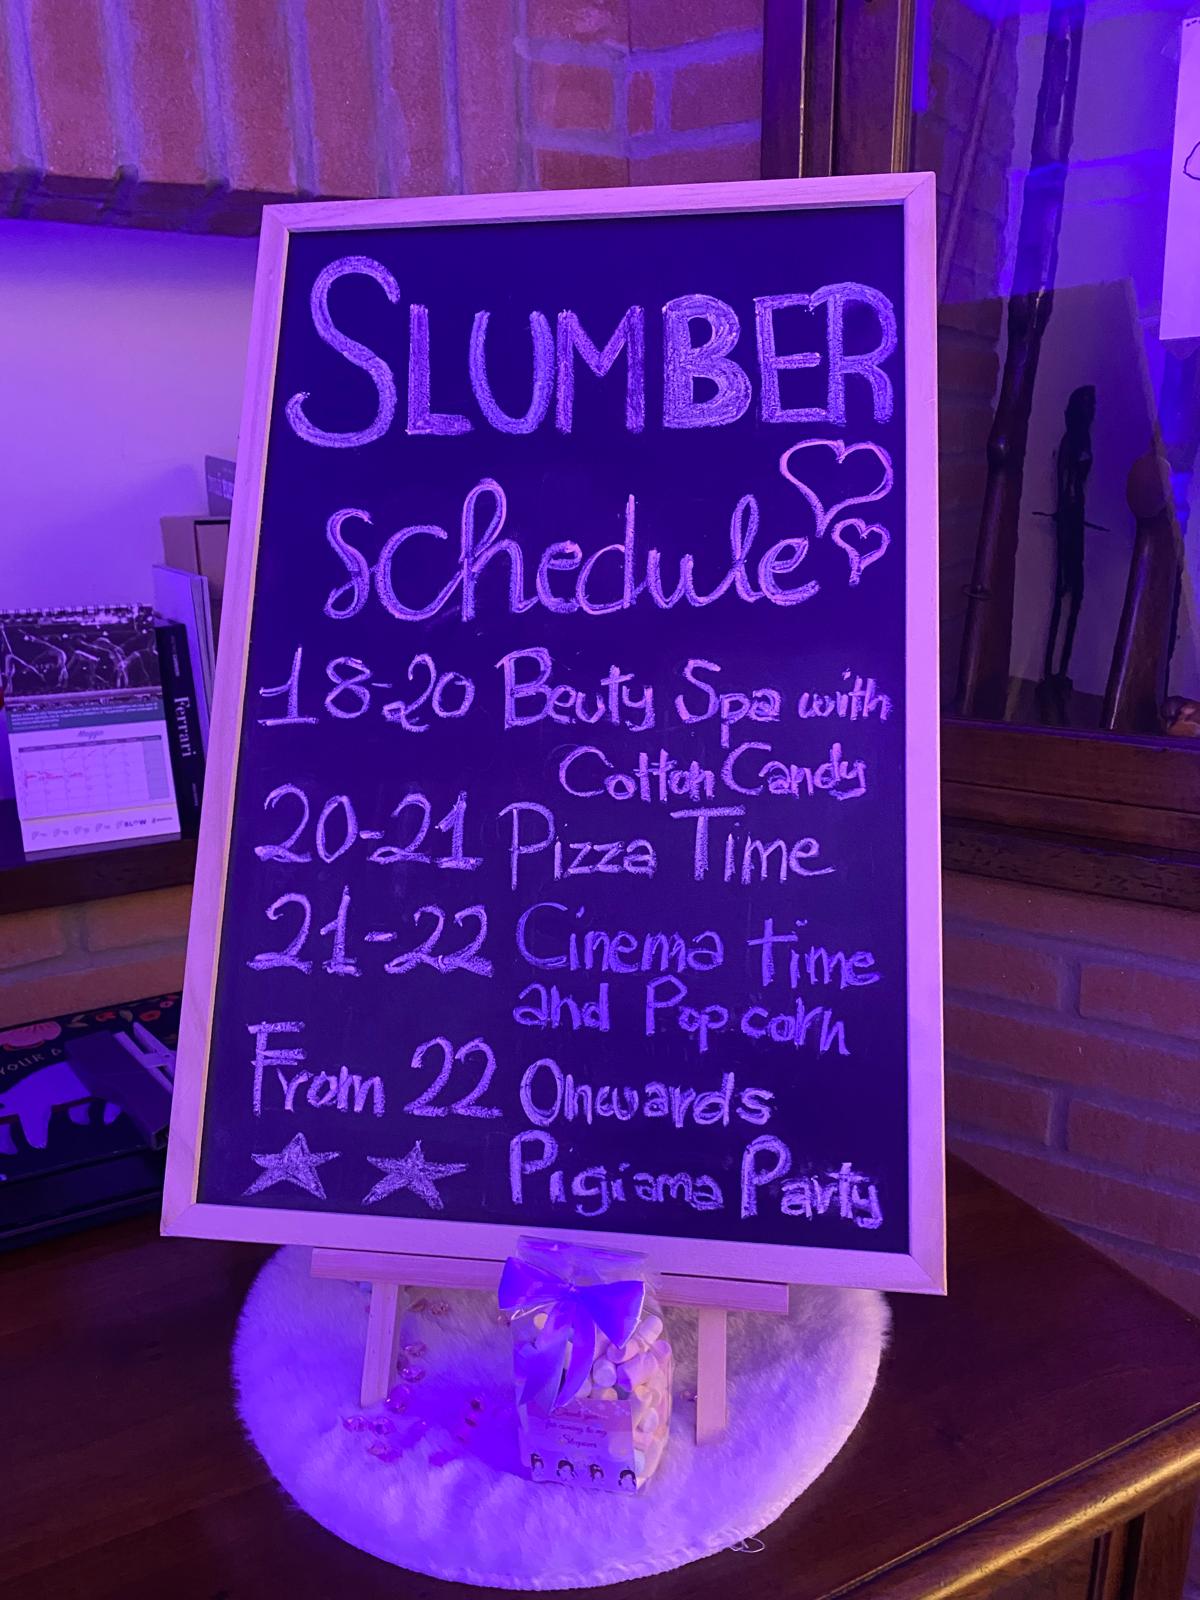 SLUMBER
schedule
18-20 Beuty Spa with
Cotton Candy
20-21 Pizza Time
21-22 Cinema time
and Popcorn
From 22 Onwards
Pigiama Party
Ferrari
Maggio
YOUR